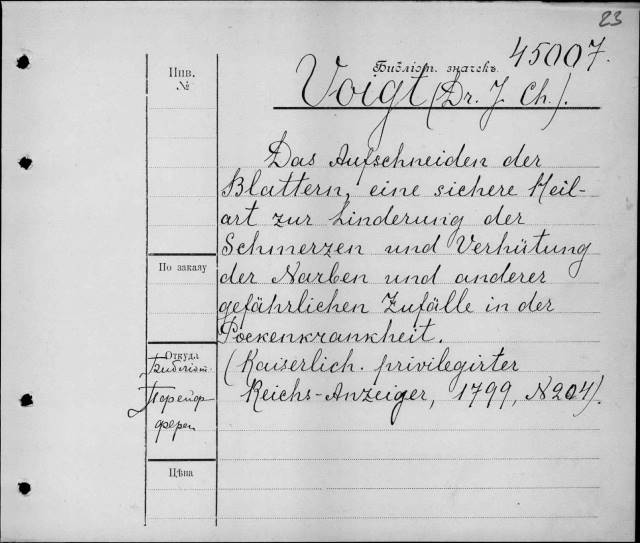 23
Инв.
№
Библіот. значекъ 45007.
Voigt (Dr. J. Ch.).
Das Aufschneiden der
Blattern, eine sichere Heil-
art zur Linderung der
Schmerzen und Verhütung
der Narben und anderer
gefährlichen Zufälle in der
Pockenkrankheit.
(Kaiserlich. privilegirter
Reichs-Anzeiger, 1799, N 204).
По заказу
Откуда
Цѣна